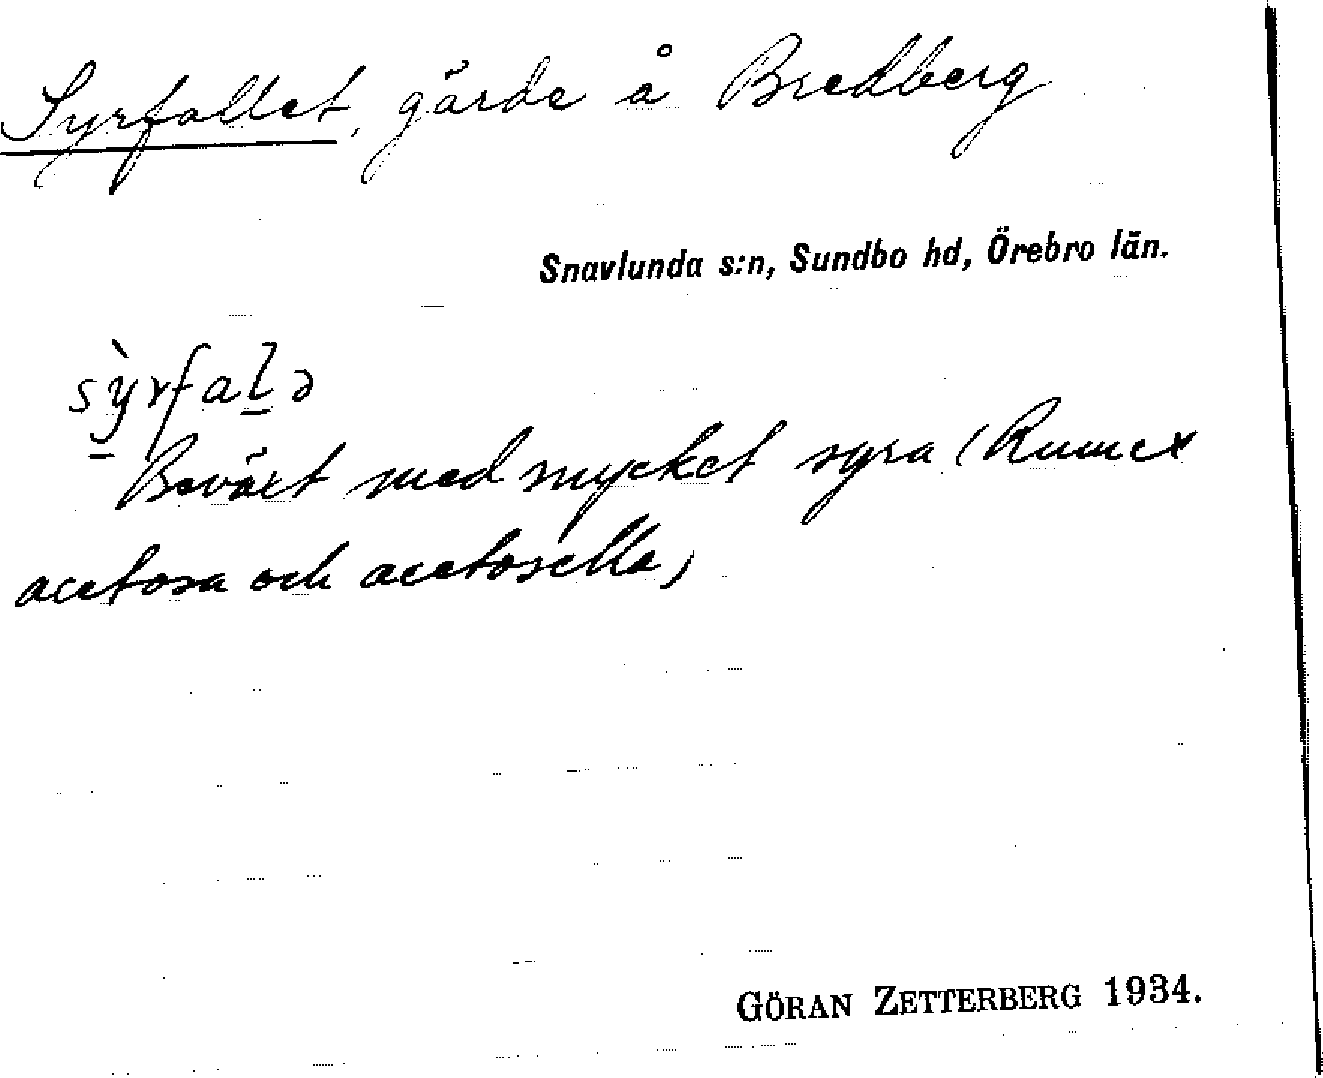 Syrfallet, gärde å Bredberg
Snavlunda s:n, Sundbo hd, Örebro län.
sỳ̱rfaḻə
Beväxt med mycket syra (Rumex
acetosa och acetosella)
GÖRAN ZETTERBERG 1934.